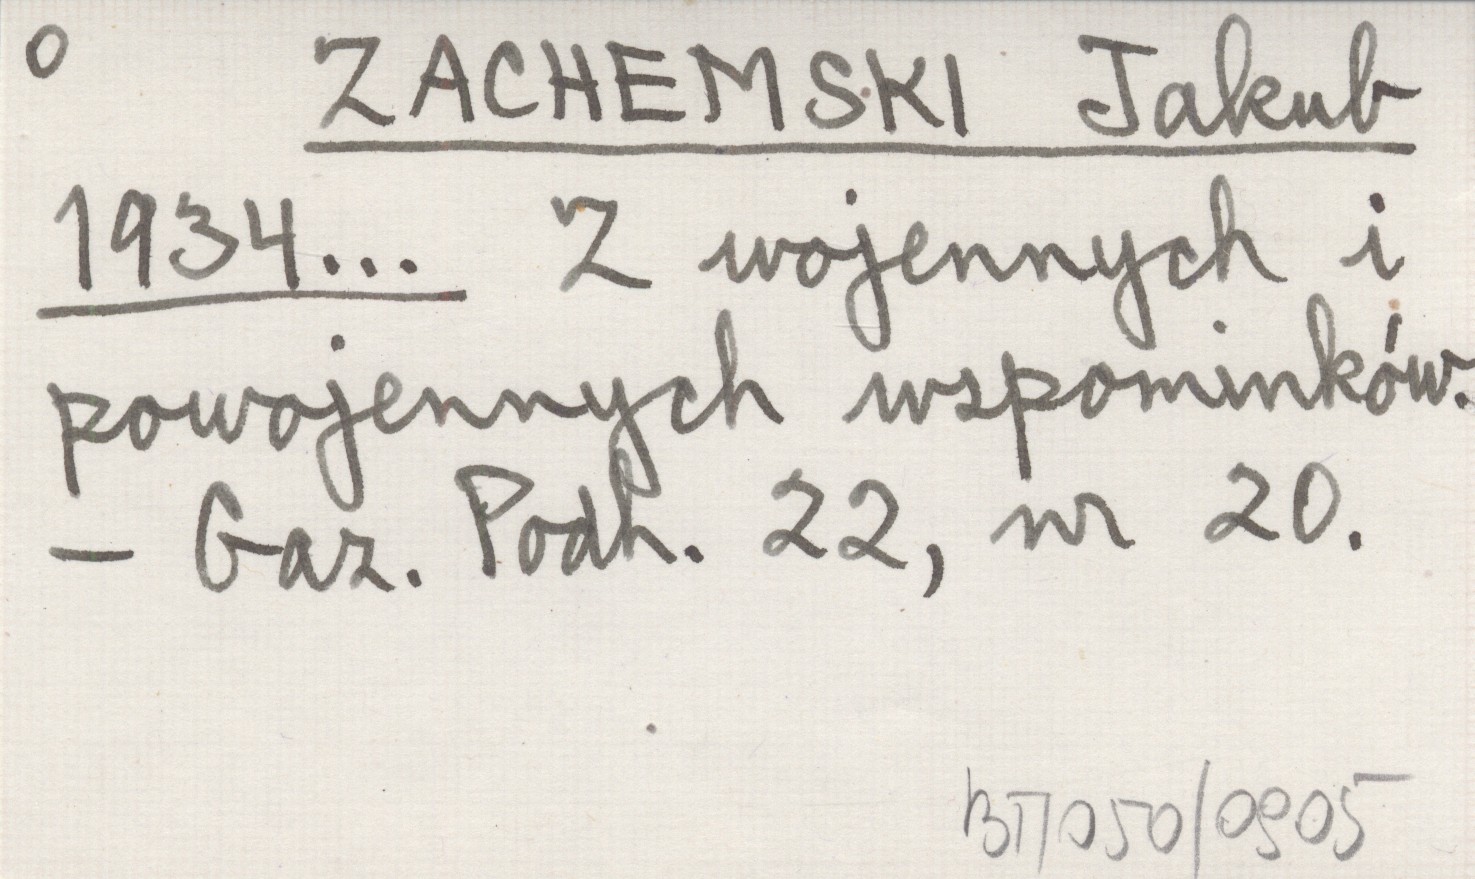 o ZACHEMSKI Jakub
1934... Z wojennych i
powojennych wspominków.
- Gaz. Podh. 22, nr 20.
BT/050/0905